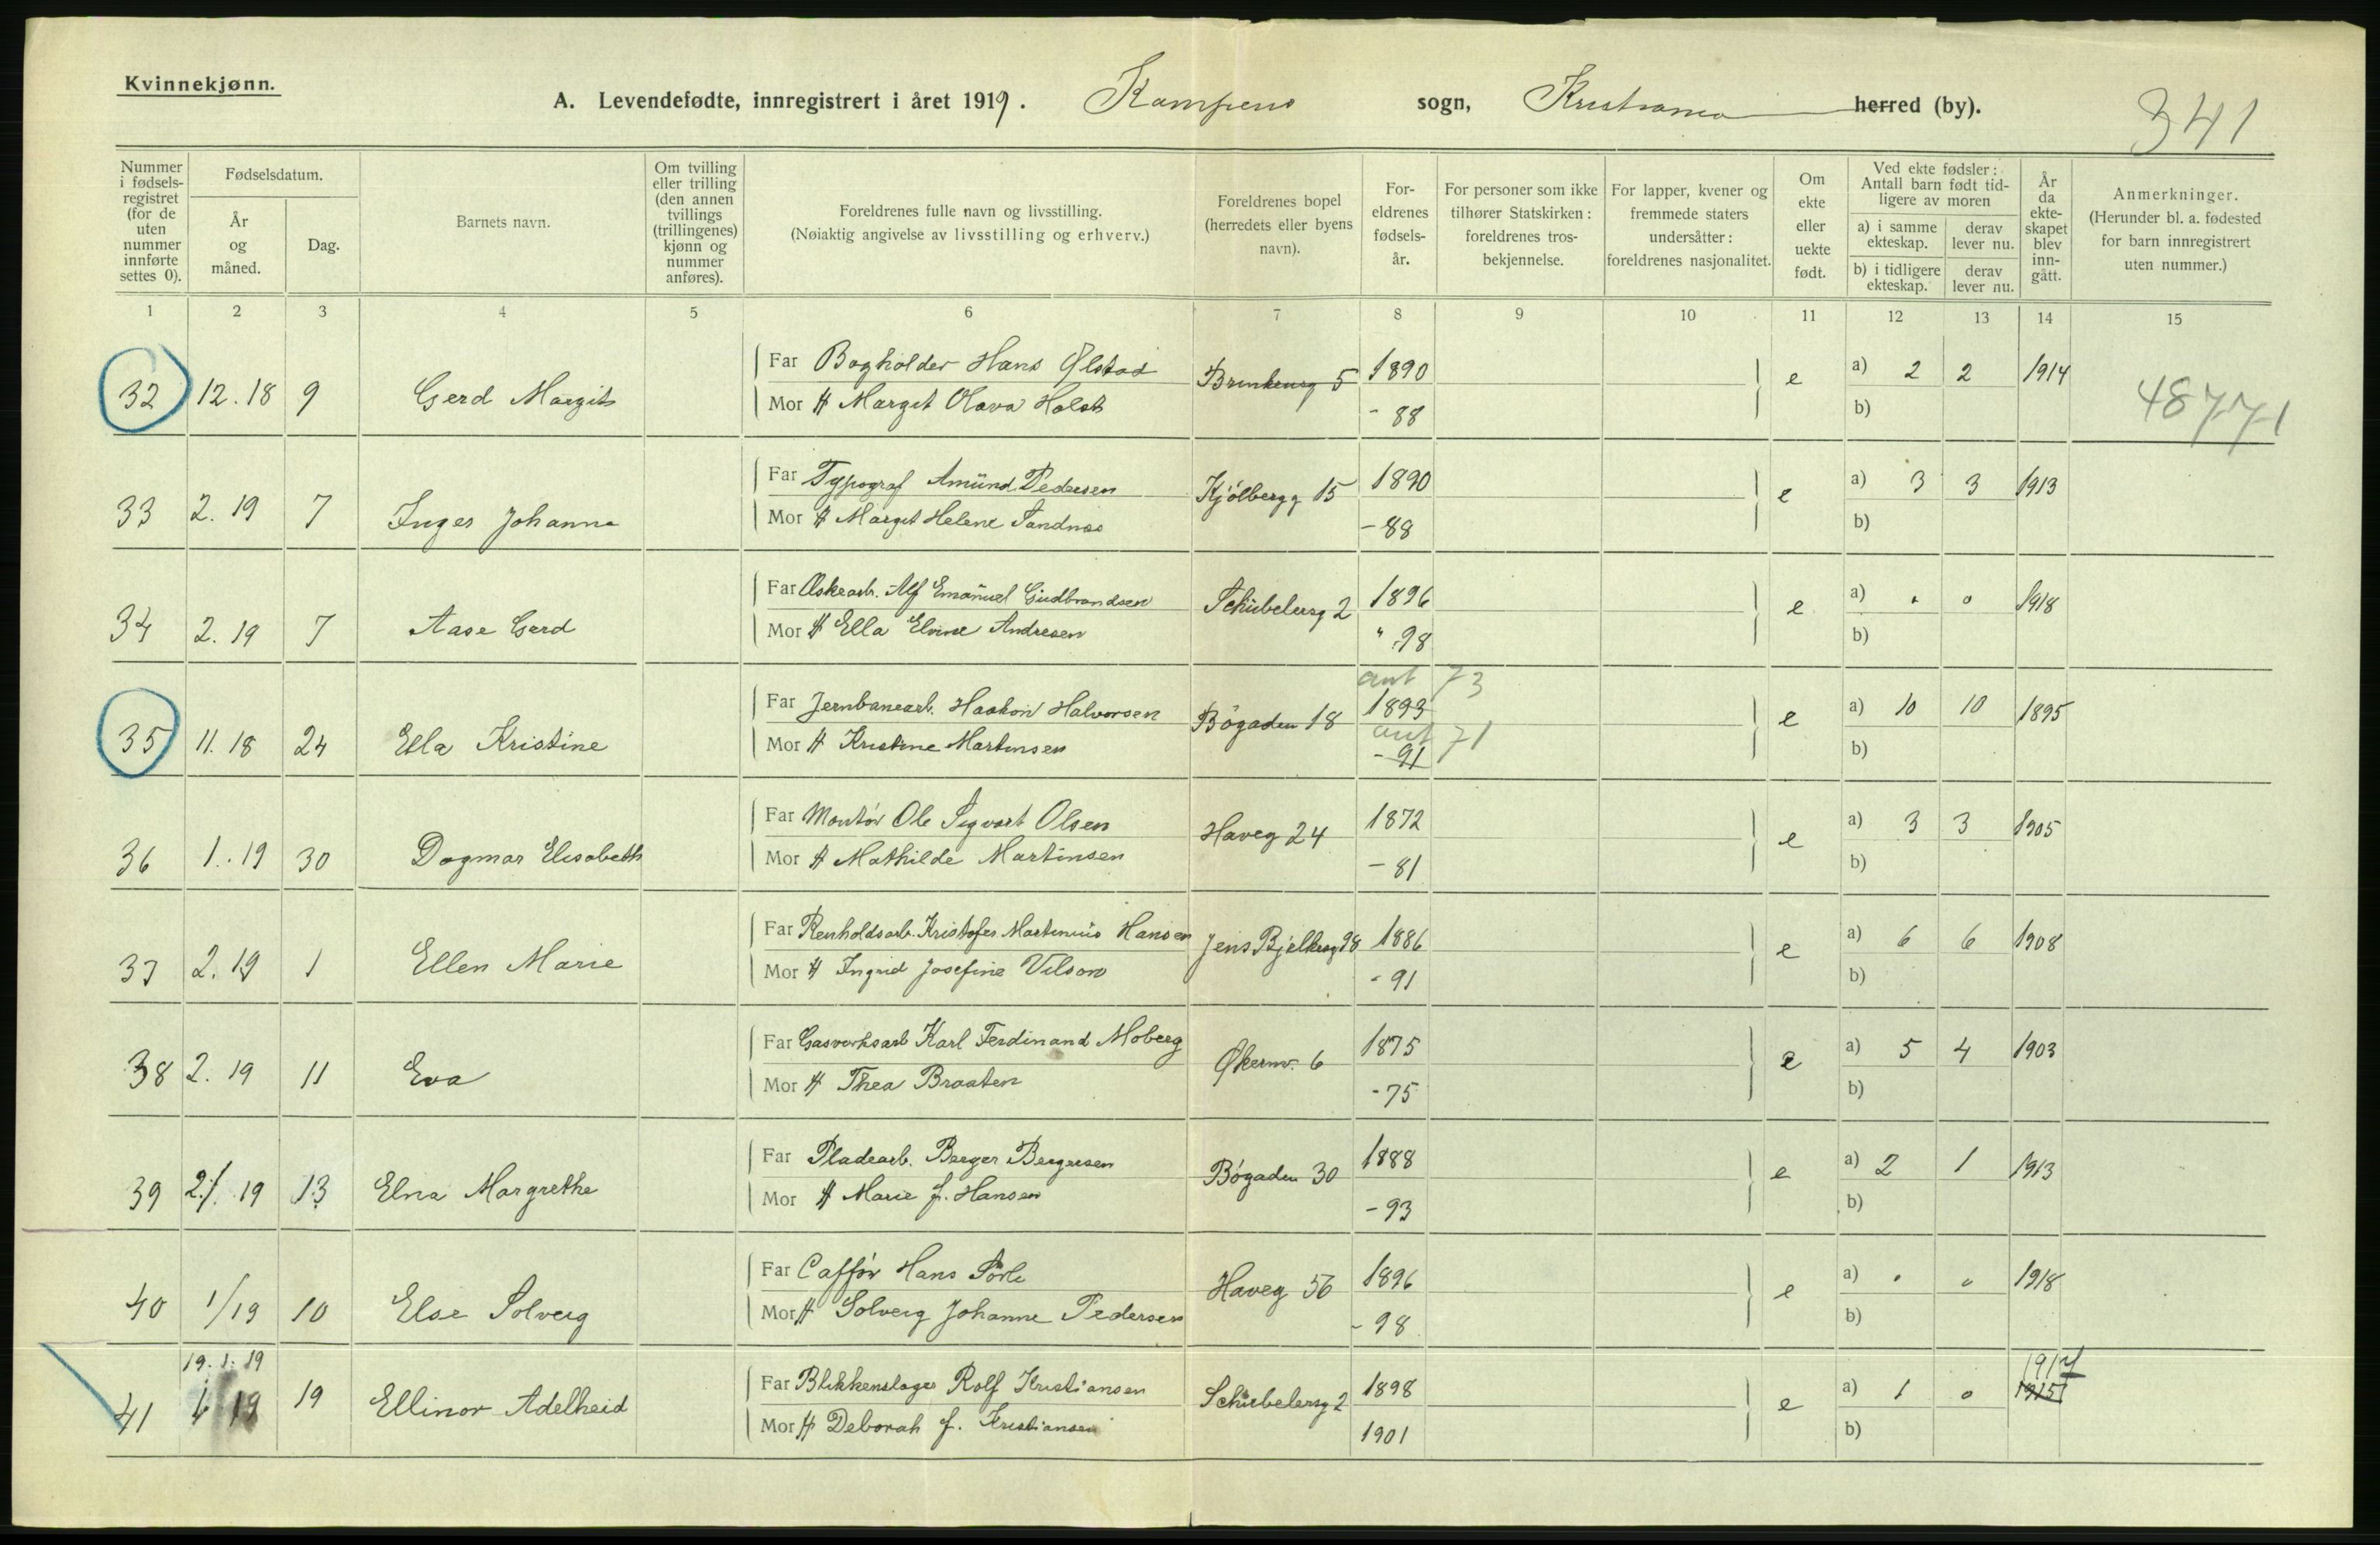 Kvinnekjønn.
A. Levendefødte, innregistrert i året 1919. Kampens sogn, Kristiania herred (by). 341
Nummer i fødselsregistret (for de uten nummer innførte settes 0).
Fødselsdatum.
År og måned.
Dag.
Barnets navn.
Om tvilling eller trilling (den annen tvillings (trillingenes) kjønn og nummer anføres).
Foreldrenes fulle navn og livsstilling.
(Nøiaktig angivelse av livsstilling og erhverv.)
Foreldrenes bopel (herredets eller byens navn).
Foreldrenes fødselsår.
For personer som ikke tilhører Statskirken: foreldrenes trosbekjennelse.
For lapper, kvener og fremmede staters undersåtter: foreldrenes nasjonalitet.
Om ekte eller uekte født.
Ved ekte fødsler: Antall barn født tidligere av moren
a) i samme ekteskap. derav lever nu.
b) i tidligere ekteskap. derav lever nu.
År da ekteskapet blev inngått.
Anmerkninger.
(Herunder bl. a. fødested for barn innregistrert uten nummer.)
1 2 3 4 5 6 7 8 9 10 11 12 13 14 15
Far Bogholder Hans Ølstad 1890 a) 2 2 1914
32 12.18 9 Gerd Margit Brinkenrg 5 e 48771
Mor H Margit Olava Holst - 88 b)
Far Typograf Amünd Pedersen 1890 a) 3 3 1913
33 2. 19 7 Inger Johanne Kjölbergg 15 e
Mor H Margit Helene Sandnas - 88 b)
Far Askearb. Alf Emanuel Gudbrandsen 1896 a) " " 1918
34 2. 19 7 Aase Gerd Schübelersg 2 e
Mor H Ella Elvine Andresen " 98 b)
ant 73
Far Jernbanearb. Haakon Halvorsen 1893 a) 10 10 1895
35 11.18 24 Ella Kristine Bögaden 18 e
ant 71
Mor H Kristine Martinsen - 91 b)
Far Montør Ole Sigvart Olsen 1872 a) 3 3 1905
36 1.19 30 Dagmar Elisabeth Haveg 24 e
Mor H Mathilde Martinsen - 81 b)
Far Renholdsarb. Kristofer Martinius Hansen 1886 a) 6 6 1908
37 2.19 1 Ellen Marie Jens Bjelkesg 98 e
Mor H Ingrid Josefine Vilson - 91 b)
Far Gasverksarb Karl Ferdinand Moberg 1875 a) 5 4 1903
38 2. 19 11 Eva Økernv. 6 e
Mor H Thea Braaten - 75 b)
Far Pladearb. Berger Bergersen 1888 a) 2 1 1913
39 2/. 19 13 Elna Margrethe Bógaden 30 e
Mor H Marie f. Hansen - 93 b)
Far Caffór Hans Sørli 1896 a) " " 1918
40 1/19 10 Else Solveig Haveg 56 e
Mor H Solveig Johanne Pedersen - 98 b)
19.1.19 1917
Far Blikkenslager Rolf Kristiansen 1898 a) 1 0 1915
41 19 19 Ellinor Adelheid Schübelersg 2 e
Mor H Deborah f. Kristiansen 1901 b)